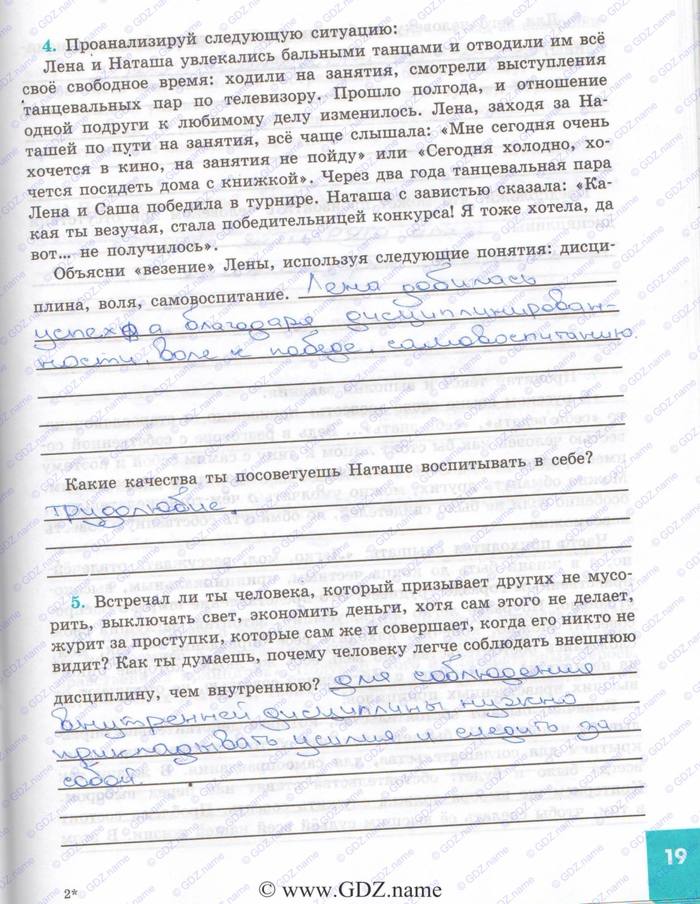 4. Проанализируй следующую ситуацию:
Лена и Наташа увлекались бальными танцами и отводили им всё
своё свободное время: ходили на занятия, смотрели выступления
танцевальных пар по телевизору. Прошло полгода, и отношение
одной подруги к любимому делу изменилось. Лена, заходя за На-
ташей по пути на занятия, всё чаще слышала: «Мне сегодня очень
хочется в кино, на занятия не пойду» или «Сегодня холодно, хо-
чется посидеть дома с книжкой». Через два года танцевальная пара
Лена и Саша победила в турнире. Наташа с завистью сказала: «Ка-
кая ты везучая, стала победительницей конкурса! Я тоже хотела, да
вот... не получилось».
Объясни «везение» Лены, используя следующие понятия: дисци-
плина, воля, самовоспитание. Лена добилась
успеха благодаря дисциплинирован-
ности, воле к победе, самовоспитанию.
Какие качества ты посоветуешь Наташе воспитывать в себе?
трудолюбие.
5. Встречал ли ты человека, который призывает других не мусо-
рить, выключать свет, экономить деньги, хотя сам этого не делает,
журит за проступки, которые сам же и совершает, когда его никто не
видит? Как ты думаешь, почему человеку легче соблюдать внешнюю
дисциплину, чем внутреннюю? для соблюдения
внутренней дисциплины нужно
прикладывать усилия и следить за
собой
19
2*
© www.GDZ.name